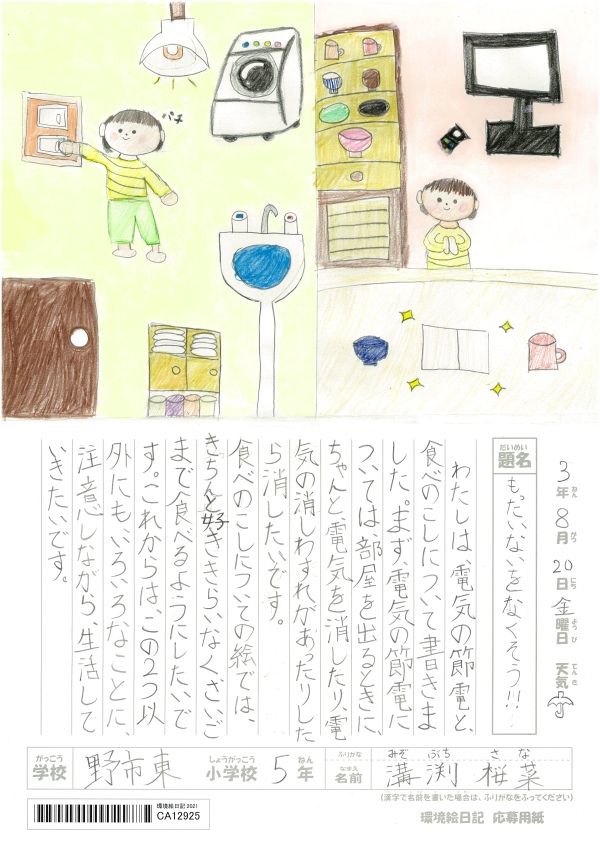 パチ
3年8月20日金曜日 天気
ねん がつ にち ようび てんき
だいめい
題名
もったいないをなくそう!!
わたしは、電気の節電と、
食べのこしについて書きま
した。まず、電気の節電に
ついては、部屋を出るときに、
ちゃんと電気を消したり、電
気の消しわすれがあったりした
ら消したいです。
食べのこしについての絵では、
きちんと好ききらいなく、さいご
まで食べるようにしたいで
す。これからは、この2つ以
外にも、いろいろなことに、
注意しながら、生活して
いきたいです。
がっこう しょうがっこう ねん
学校 野市東 小学校 5年
ふりがな みぞ ぶち さ な
なまえ
名前 溝渕 桜菜
(漢字で名前を書いた場合は、ふりがなをふってください)
環境絵日記 2021
CA12925
環境絵日記 応募用紙